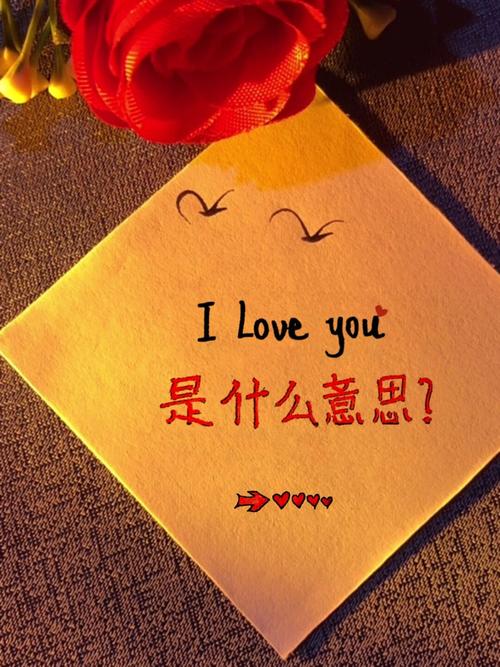 I Love you
是什么意思?